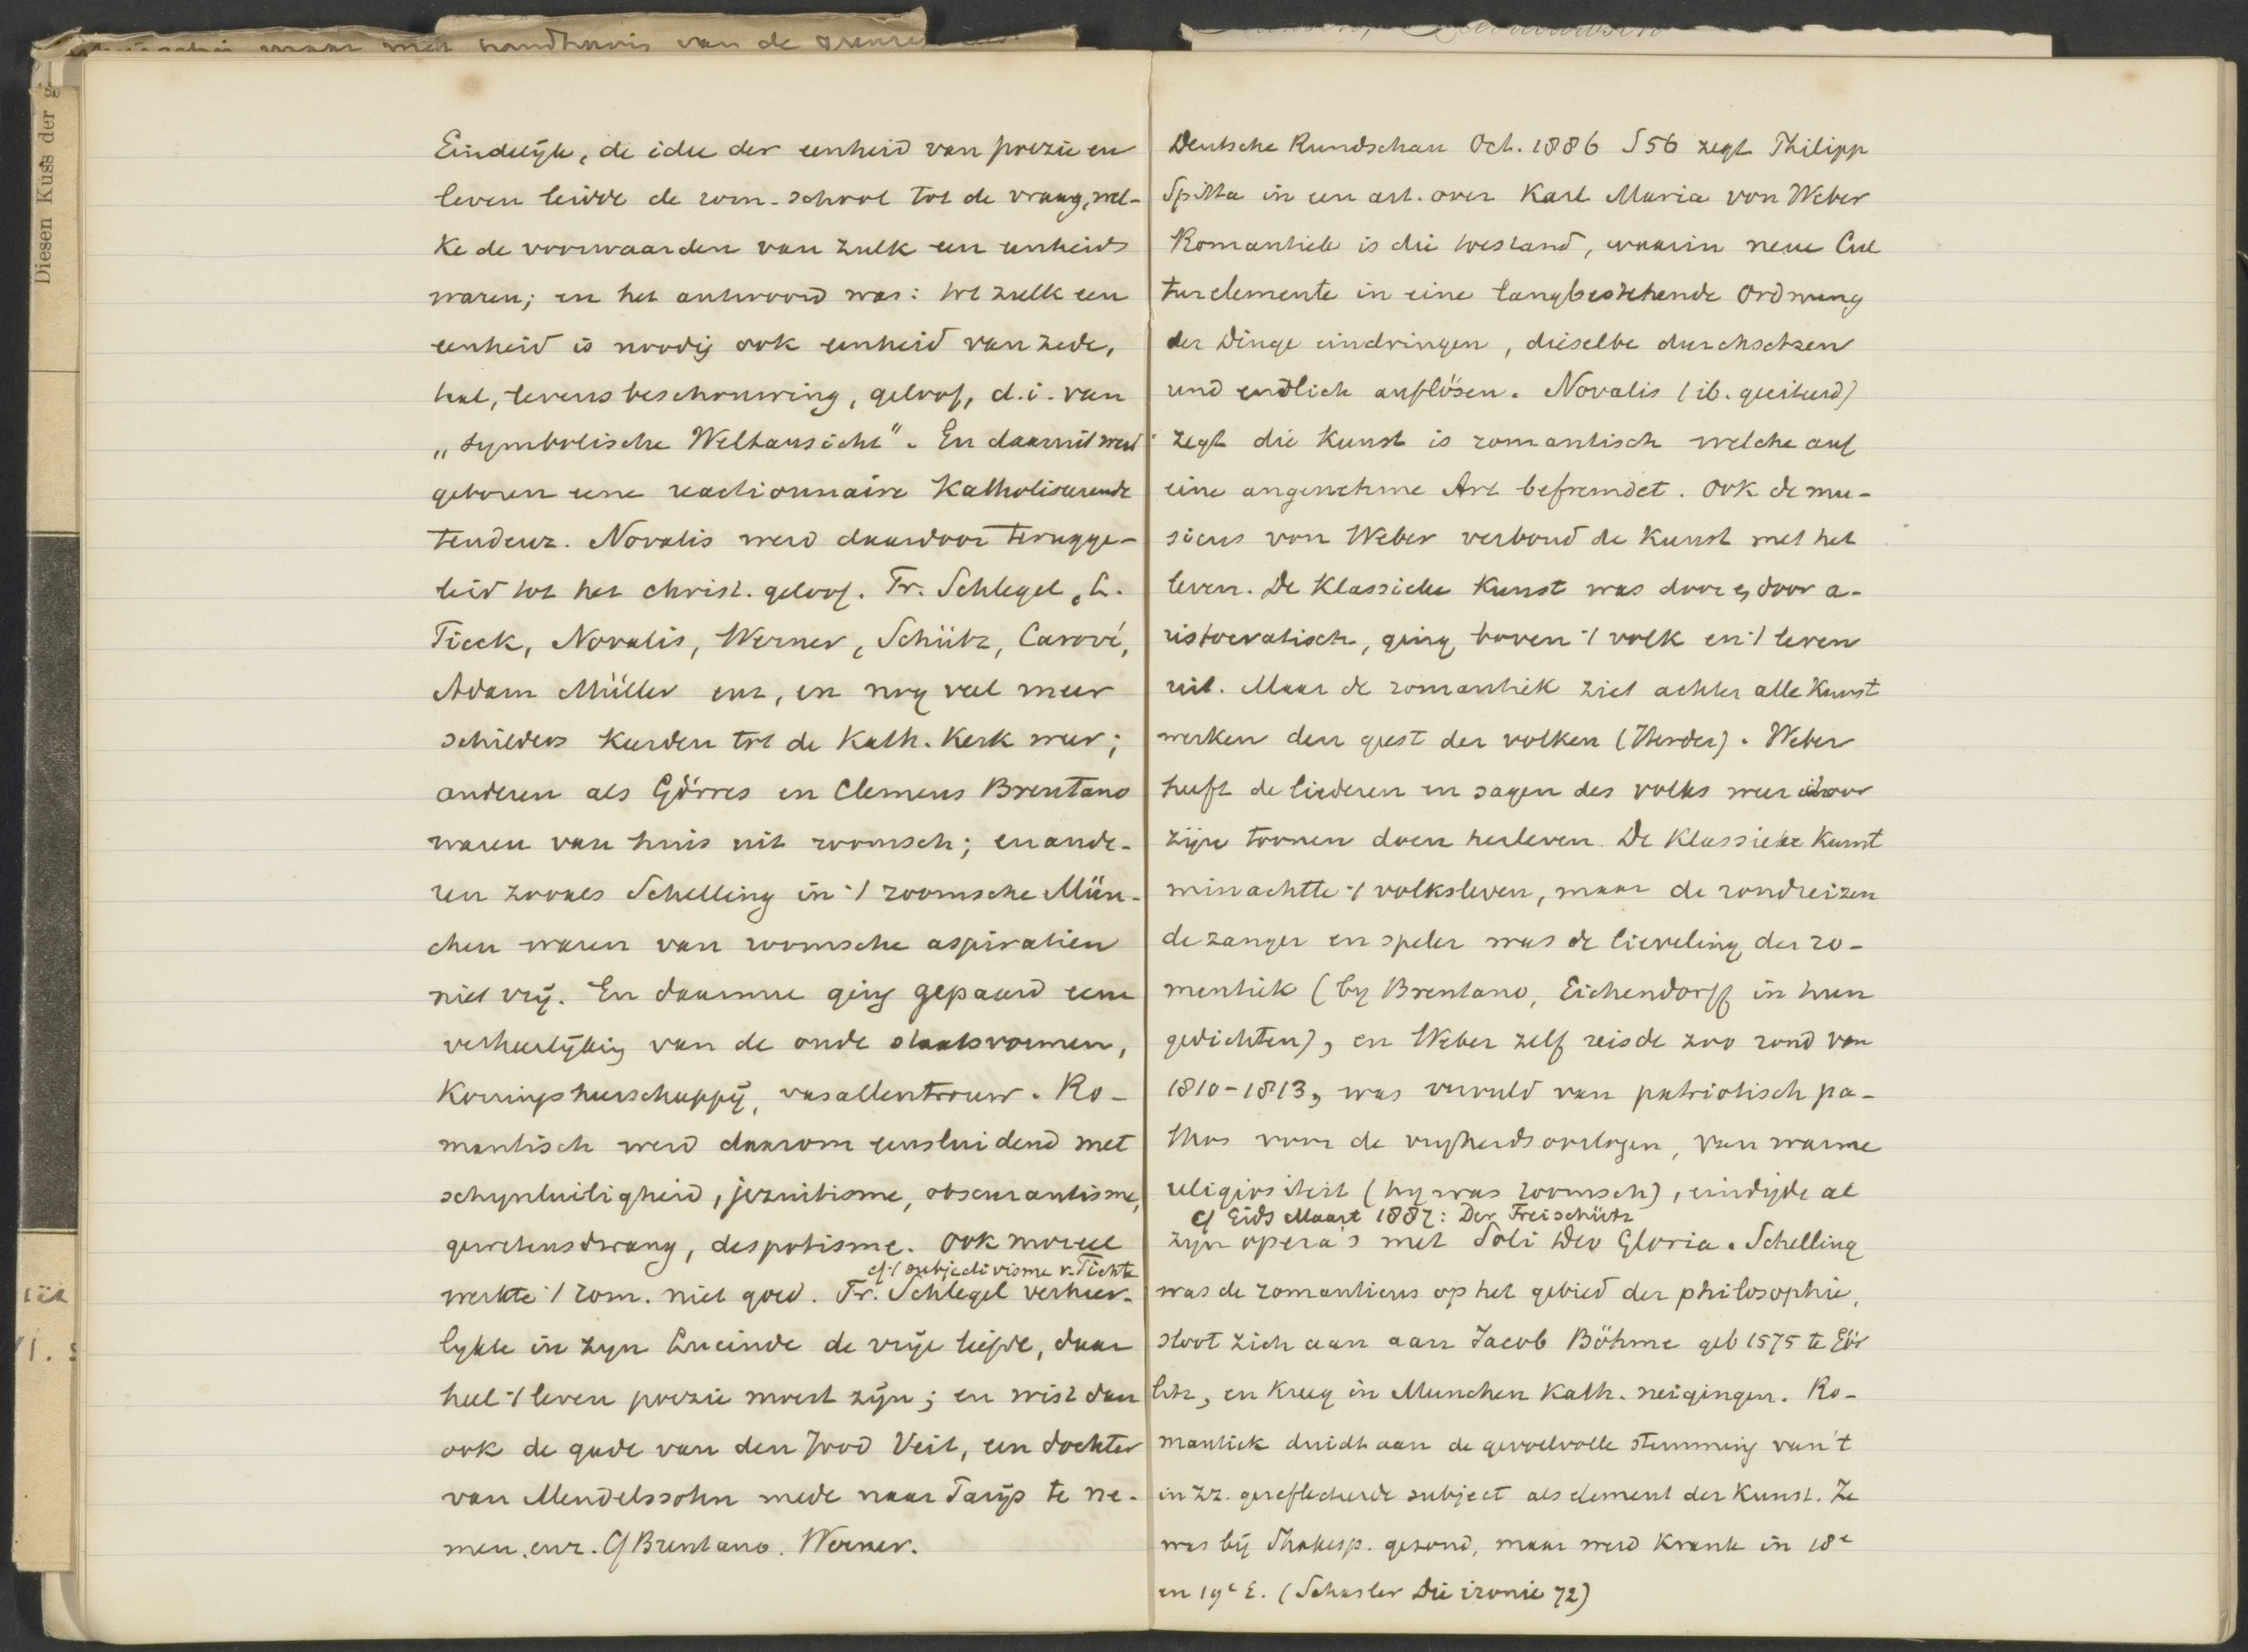 maar met handhavis van de
Diesen Kuss der
Eindelijk, de idee der eenheid van poezie en
leven leidde de rom. school tot de vraag, wel-
ke de voorwaarden van zulk een eenheid
waren; en het antwoord was: tot zulk een
eenheid is noodig ook eenheid van zede,
taal, levensbeschouwing, geloof, d.i. van
„symbolische Weltansicht". En daarmit werd
geboren eene reactionnaire Katholiseerende
tendenz. Novalis werd daardoor terugge-
leid tot het christ. geloof. Fr. Schlegel, L.
Tieck, Novalis, Werner, Schütz, Carové,
Adam Müller enz, en nog veel meer
schilders keerden tot de Kath. Kerk weer;
anderen als Görres en Clemens Brentano
waren van huis uit roomsch; en ande-
ren zooals Schelling in 't roomsche Mün-
chen waren van roomsche aspiratien
niet vrij. En daarmee ging gepaard eene
verheerlijking van de oude staatsvormen,
Koningsheerschappij, vasallentrouw. Ro-
mantisch werd daarom eensluidend met
schynheiligheid, jezuitisme, obscurantisme,
gewetensdwang, despotisme. Ook moreel
cf 't subjectivisme v. Fichte
werkte 't rom. niet goed. Fr. Schlegel verheer-
lykte in zyn Lucinde de vrije liefde, daar
heel 't leven poezie moest zijn; en wist dan
ook de gade van den Jood Veit, een dochter
van Mendelssohn mede naar Parijs te ne-
men. enz. Cf Brentano. Werner.
Deutsche Rundschau Oct. 1886 S 56 zegt Philipp
Spitta in een art. over Karl Maria von Weber
Romantiek is die toestand, waarin neue Cul
turelemente in eine langbestehende Ordnung
der Dinge eindringen, dieselbe durchsetzen
und endlich auflösen. Novalis (ib. geciteerd)
zegt die Kunst is romantisch welche auf
eine angenehme Art befremdet. Ook de mu-
sicus von Weber verbond de Kunst met het
leven. De Klassieke Kunst was door en door a-
ristocratisch, ging boven 't volk en 't leven
uit. Maar de romantiek ziet achter alle Kunst
werken den geest der volken (Herder). Weber
heeft de liederen en sagen des volks weer door
zijne toonen doen herleven. De Klassieke Kunst
minachtte 't volksleven, maar de rondreizen
de zanger en speler was de lieveling der ro-
mentiek (by Brentano, Eichendorff in hun
gedichten), en Weber zelf reisde zoo rond van
1810-1813, was vervuld van patriotisch pa-
thos voor de vryheidsoorlogen, van warme
religiositeit (hy was roomsch), eindigde al
cf Eids Maart 1887: Der Freischütz
zijn opera's met Soli Deo Gloria. Schelling
was de romanticus op het gebied der philosophie,
sloot zich aan aan Jacob Böhme geb 1575 te Gör
litz, en kreeg in Munchen Kath. neigingen. Ro-
mantiek duidt aan de gevoelvolle stemming van 't
in zz. gereflecteerde subject als element der Kunst. Ze
was bij Shakesp. gezond, maar werd krank in 18e
en 19e E. (Schasler Die ironie 72)